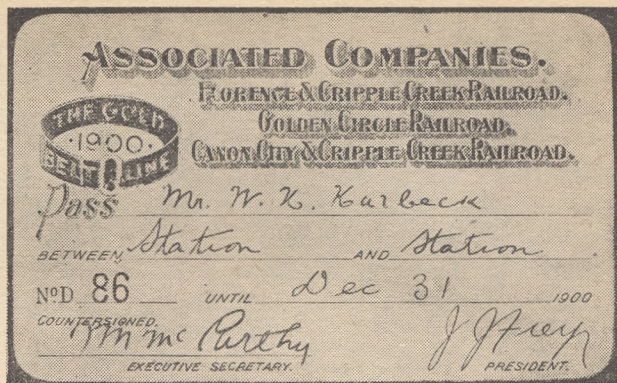 ASSOCIATED COMPANIES.
FLORENCE & CRIPPLE CREEK RAILROAD.
GOLDEN CIRCLE RAILROAD.
CANON CITY & CRIPPLE CREEK RAILROAD.
THE GOLD
·1900·
BELT LINE
Pass Mr. W. K. Kurbeck
BETWEEN Station AND Station
No D 86 UNTIL Dec 31 1900
COUNTERSIGNED.
M Mc Carthy
EXECUTIVE SECRETARY. PRESIDENT.